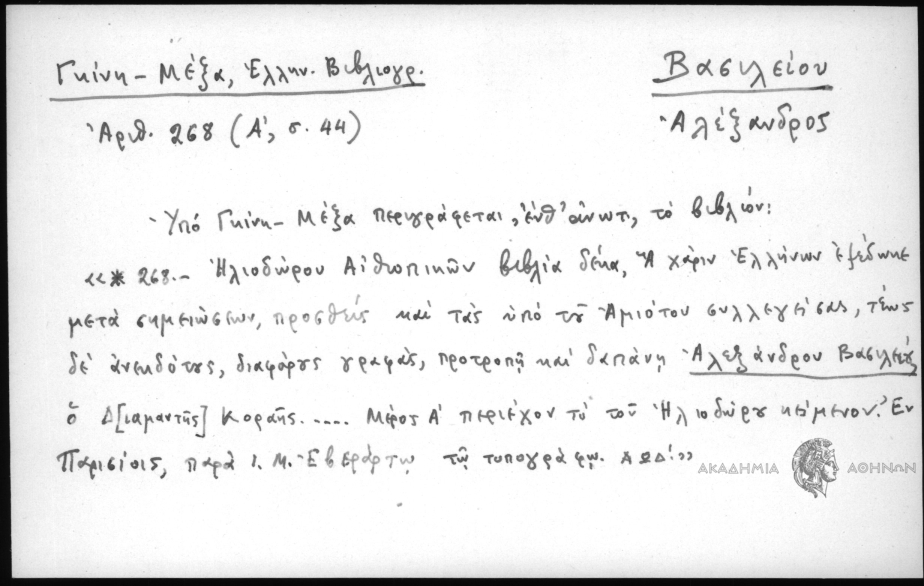 Γκίνη - Μέξα, Ἑλλην. Βιβλιογρ.
Βασιλείου
Ἀριθ. 268 (Α', σ. 44)
Ἀλέξανδρος
Ὑπό Γκίνη - Μέξα περιγράφεται, ἔνθ' ἄνωτ., τὸ βιβλίον:
«* 268.- Ἡλιοδώρου Αἰθιοπικῶν βιβλία δέκα, Ἃ χάριν Ἑλλήνων ἐξέδωκε
μετὰ σημειώσεων, προσθεὶς καὶ τὰς ὑπὸ τοῦ Ἀμιότου συλλεγείσας, τέως
δὲ ἀνεκδότους, διαφόρους γραφάς, προτροπῇ καὶ δαπάνῃ Ἀλεξάνδρου Βασιλείου
ὁ Δ[ιαμαντῆς] Κοραῆς..... Μέρος Α' περιέχον τὸ τοῦ Ἡλιοδώρου κείμενον. Ἐν
Παρισίοις, παρὰ Ι. Μ. Ἐβεράρτῳ τῷ τυπογράφῳ. ΑΩΔ'.»
ΑΚΑΔΗΜΙΑ ΑΘΗΝΩΝ